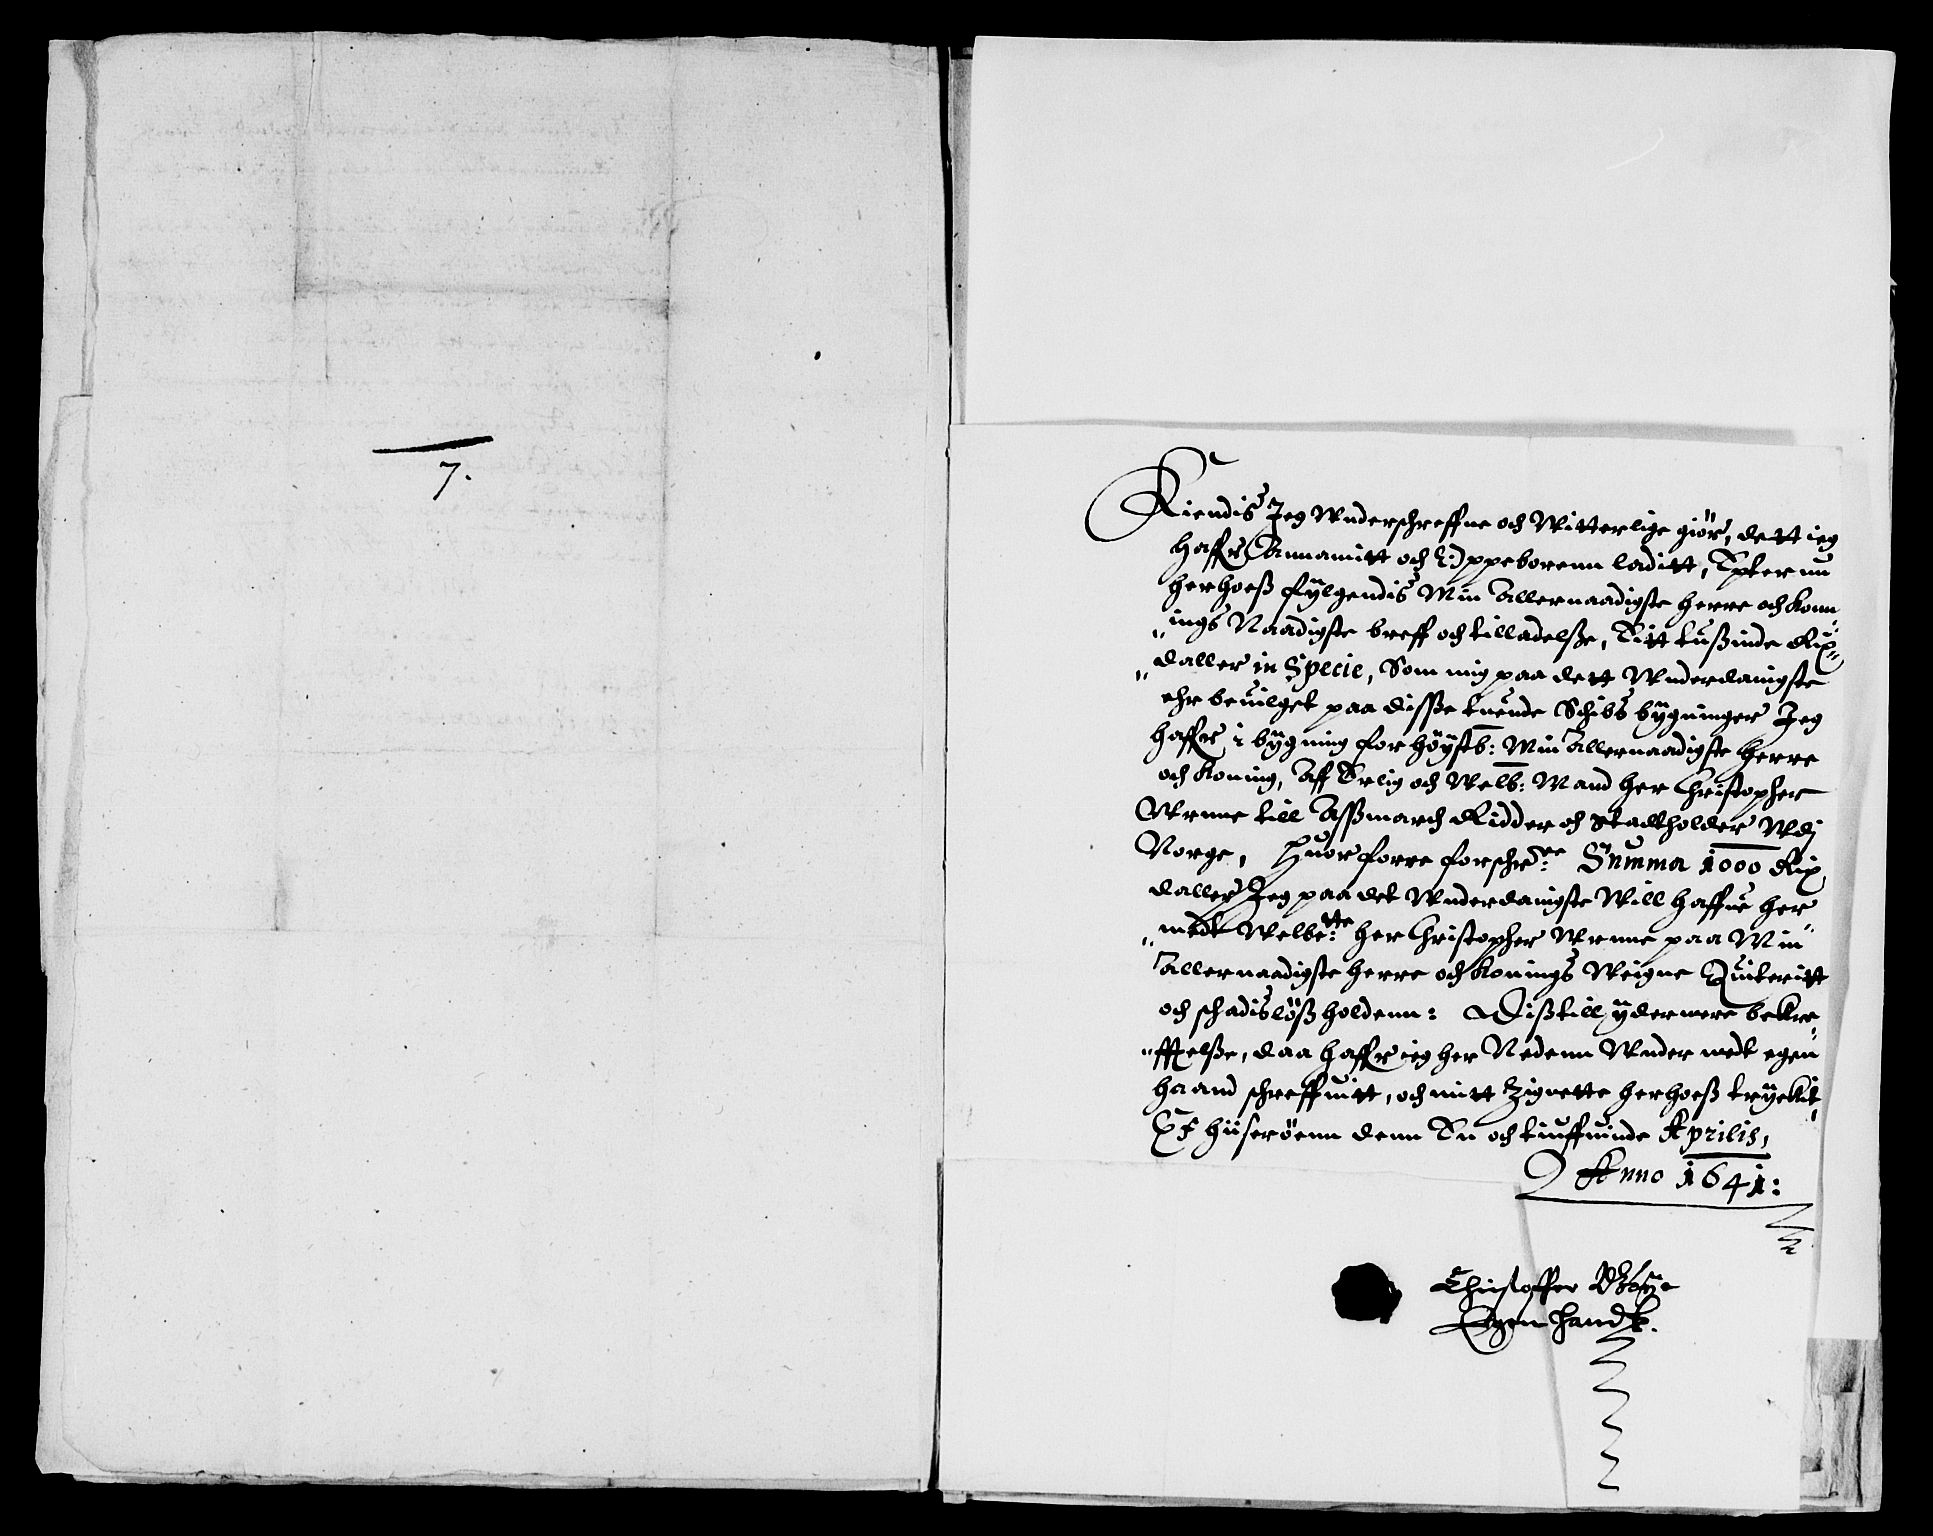 7.
Kiendis Jeg Wnderschreffne och Witterlige giör, dett ieg
haffr Annamitt och Oppeborenn laditt, Epter nu
herhoeß fylgendis Min Allernaadigste herre och Konn
ings Naadigste breff och tilladelße, Titt tußinde Rix
daller in Specie, Som mig paa dett Wnderdanigste
ehr beuilget paa disße tuende Schibs bÿgninger Jeg
haffr i bÿgning for höÿstb: Min Allernaadigste herre
och Koning, Aff Erlig och Welb: Mand her Christopher
Wrnne till Aßmarch Ridder och Stadtholder Wdj
Norge, Huorforre forschr:ne Summa 1000 Rix
daller Jeg paa det Wnderdanigste Will haffue her
medt Welbe:tte her Christopher Wrnne paa Min
Allernaadigste herre och Konings Weigne Quiteritt
och schadislöß holdenn: Dißtill ÿdermere bekre
fftelße, daa haffr ieg her Nedenn Wnder medt egen
haand schreffuitt, och mitt Zignette herhoeß trÿckit
Ex hüseröenn denn En och tiuffuinde Aprilis,
Anno 1641:
Christoffer Gøÿe
Egen handt.